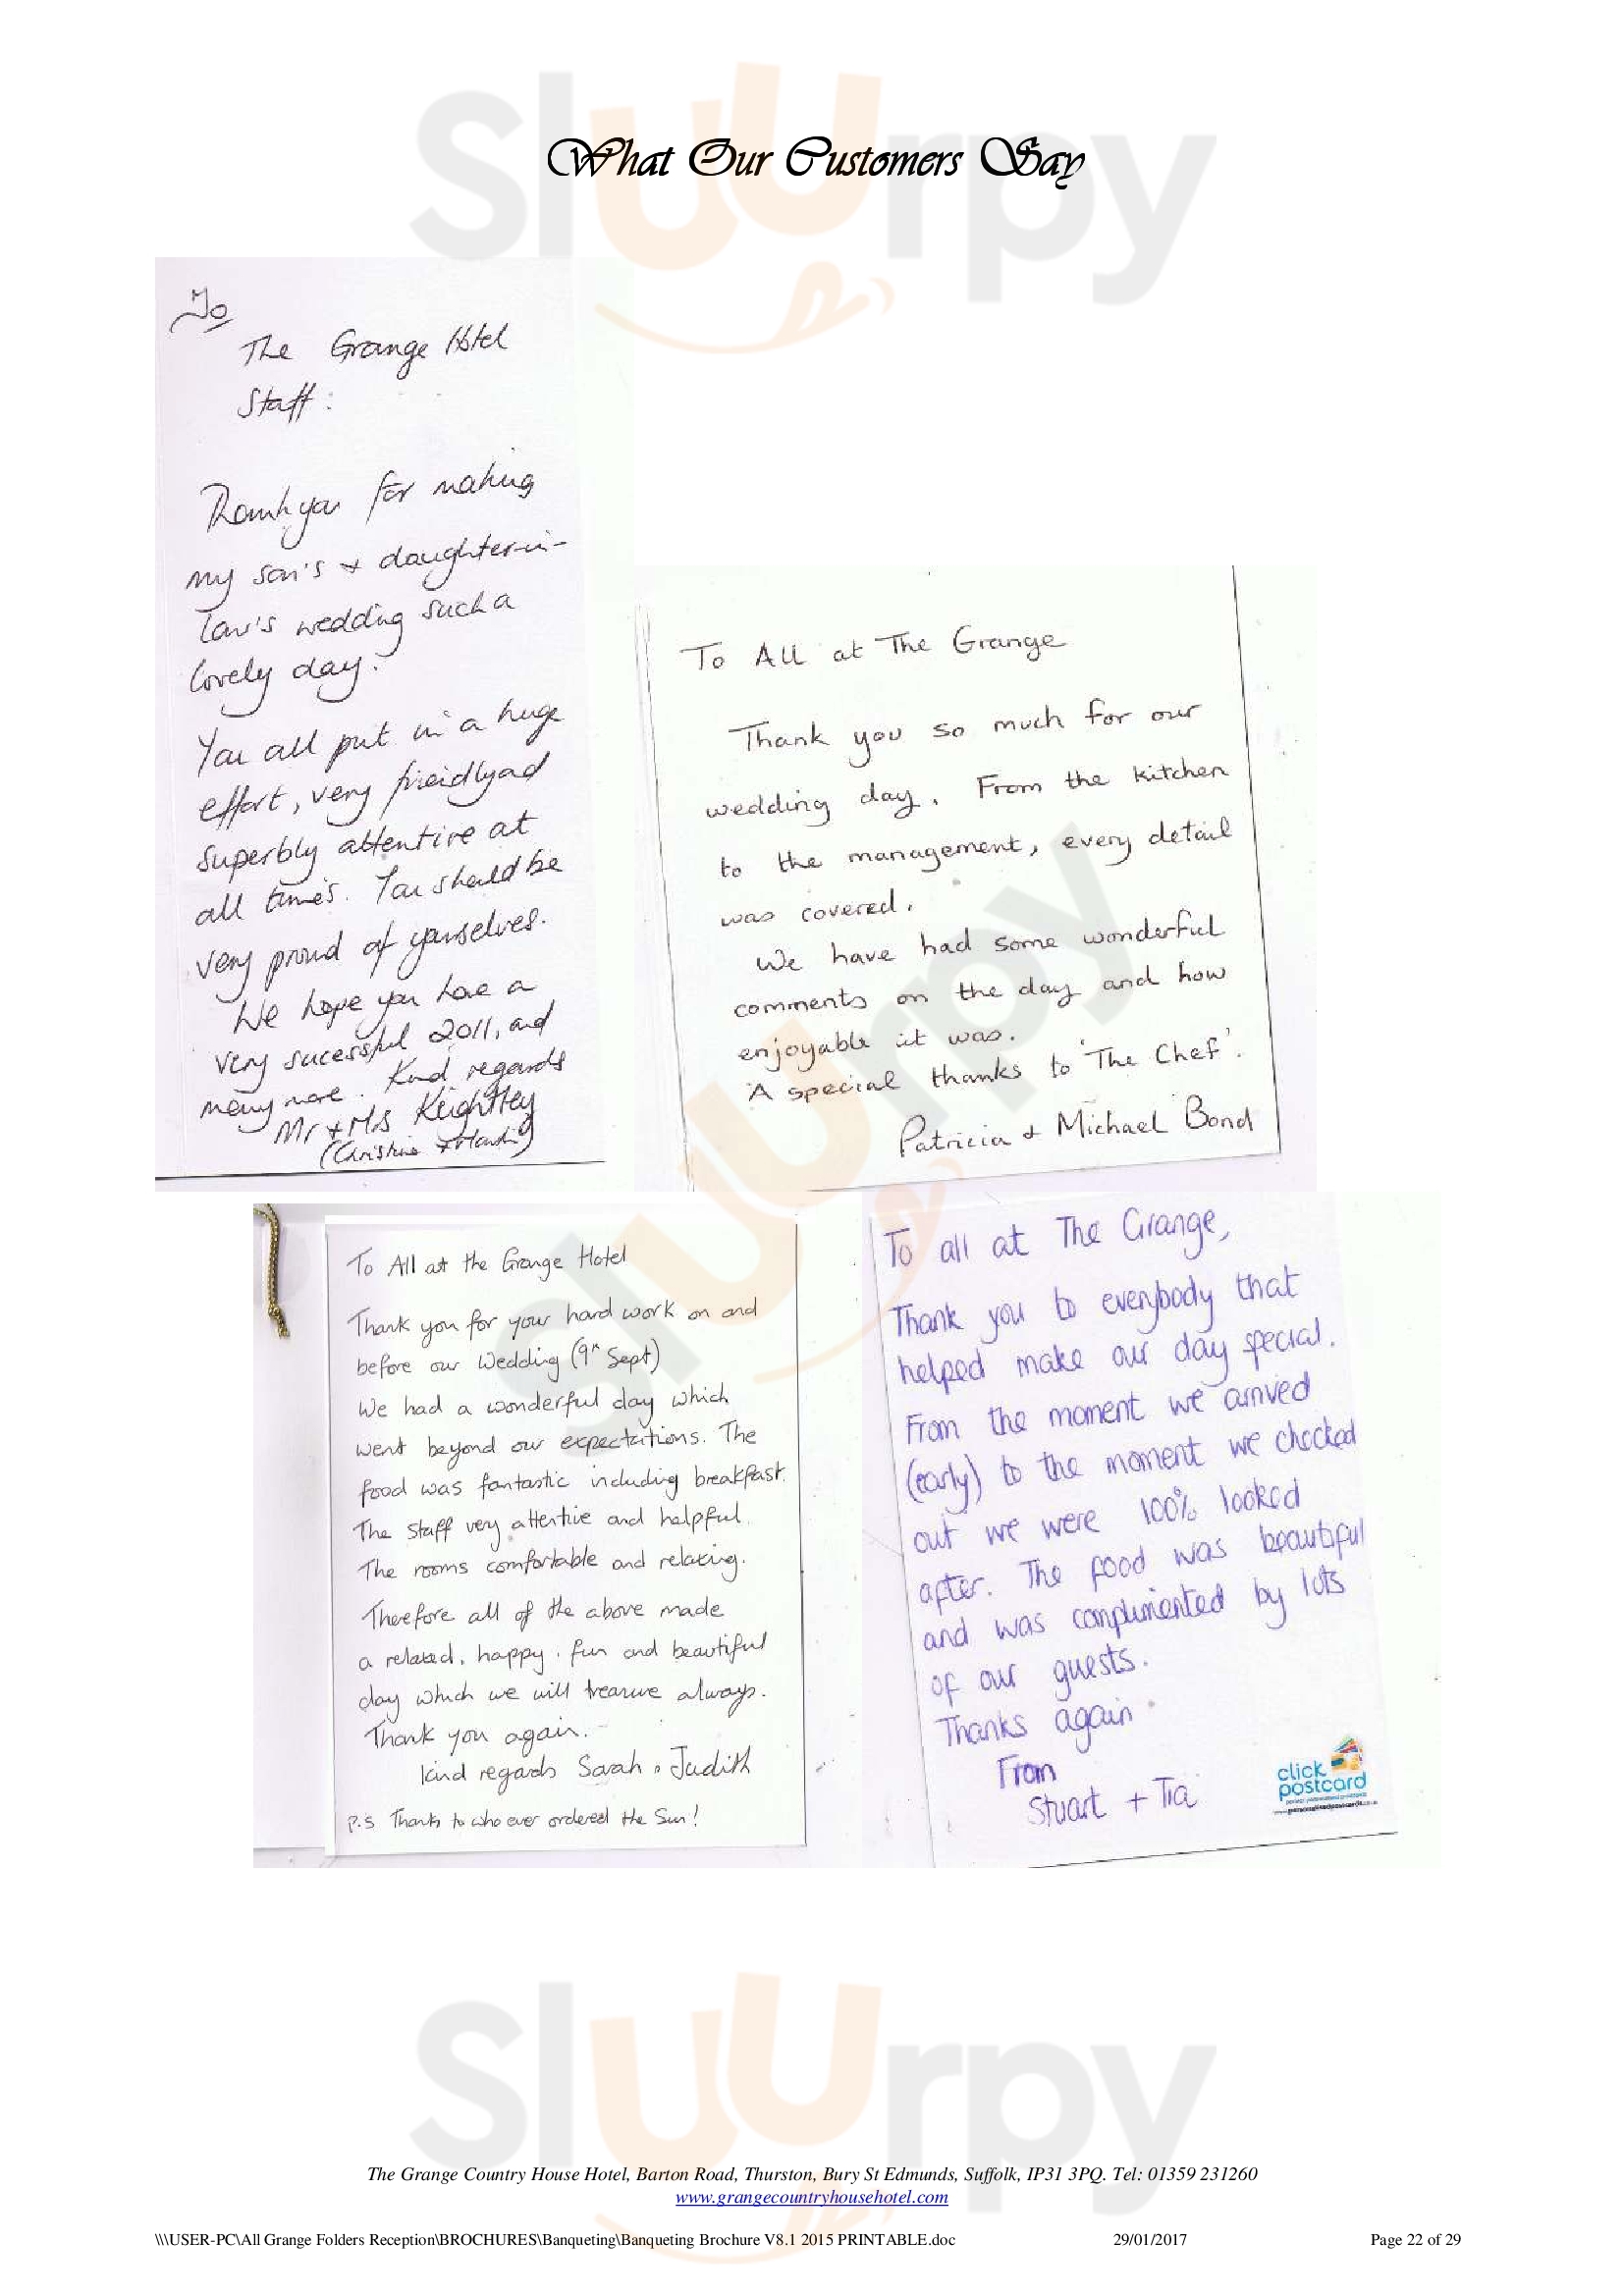 What Our Customers Say
To
The Grange Hotel
Staff:
Thankyou for making
my son's + daughter-in-
law's wedding such a
lovely day.
You all put in a huge
effort, very friendly and
superbly attentive at
all times. You should be
very proud of yourselves.
We hope you have a
very sucessful 2011, and
many more. Kind regards
Mr + Mrs Keightley
(Christine +
To All at The Grange
Thank you so much for our
wedding day. From the kitchen
to the management, every detail
was covered.
We have had some wonderful
comments on the day and how
enjoyable it was.
A special thanks to 'The Chef'.
Patricia + Michael Bond
To All at the Grange Hotel
Thank you for your hard work on and
before our Wedding (9th Sept)
We had a wonderful day which
went beyond our expectations. The
food was fantastic including breakfast.
The staff very attentive and helpful.
The rooms comfortable and relaxing.
Therefore all of the above made
a relaxed, happy, fun and beautiful
day which we will treasure always.
Thank you again.
Kind regards Sarah & Judith
P.S Thanks to who ever ordered the Sun!
To all at The Grange,
Thank you to everybody that
helped make our day special.
From the moment we arrived
(early) to the moment we checked
out we were 100% looked
after. The food was beautiful
and was complimented by lots
of our guests.
Thanks again
From
Stuart + Tia
click
postcard
The Grange Country House Hotel, Barton Road, Thurston, Bury St Edmunds, Suffolk, IP31 3PQ. Tel: 01359 231260
www.grangecountryhousehotel.com
\\\USER-PC\All Grange Folders Reception\BROCHURES\Banqueting\Banqueting Brochure V8.1 2015 PRINTABLE.doc 29/01/2017 Page 22 of 29
Sluurpy
Sluurpy
Sluurpy